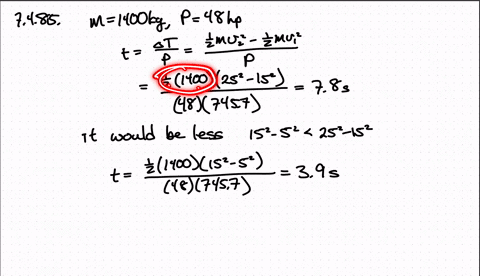 7.4.85. m=1400kg, P=48hp
t = ΔT/P = (½mv₂² - ½mv₁²)/P
= ½(1400)(25²-15²)/(48)(745.7) = 7.8s
it would be less 15²-5² < 25²-15²
t = ½(1400)(15²-5²)/(48)(745.7) = 3.9s